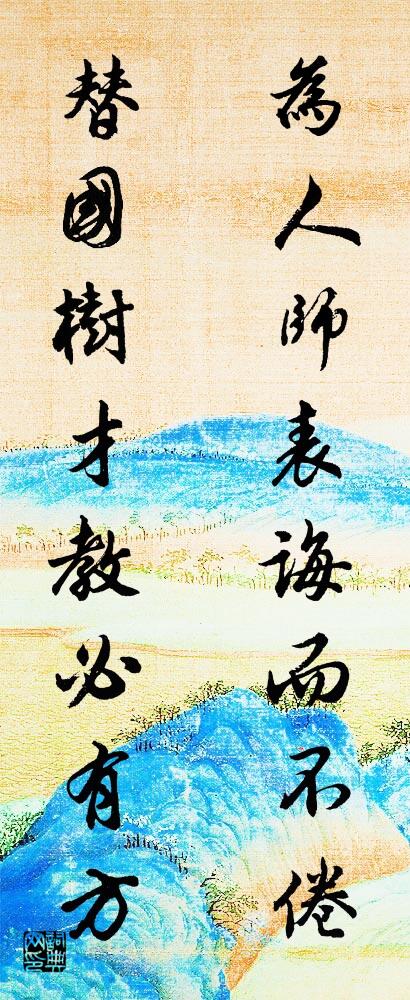 為人師表誨而不倦
替國樹才教必有方